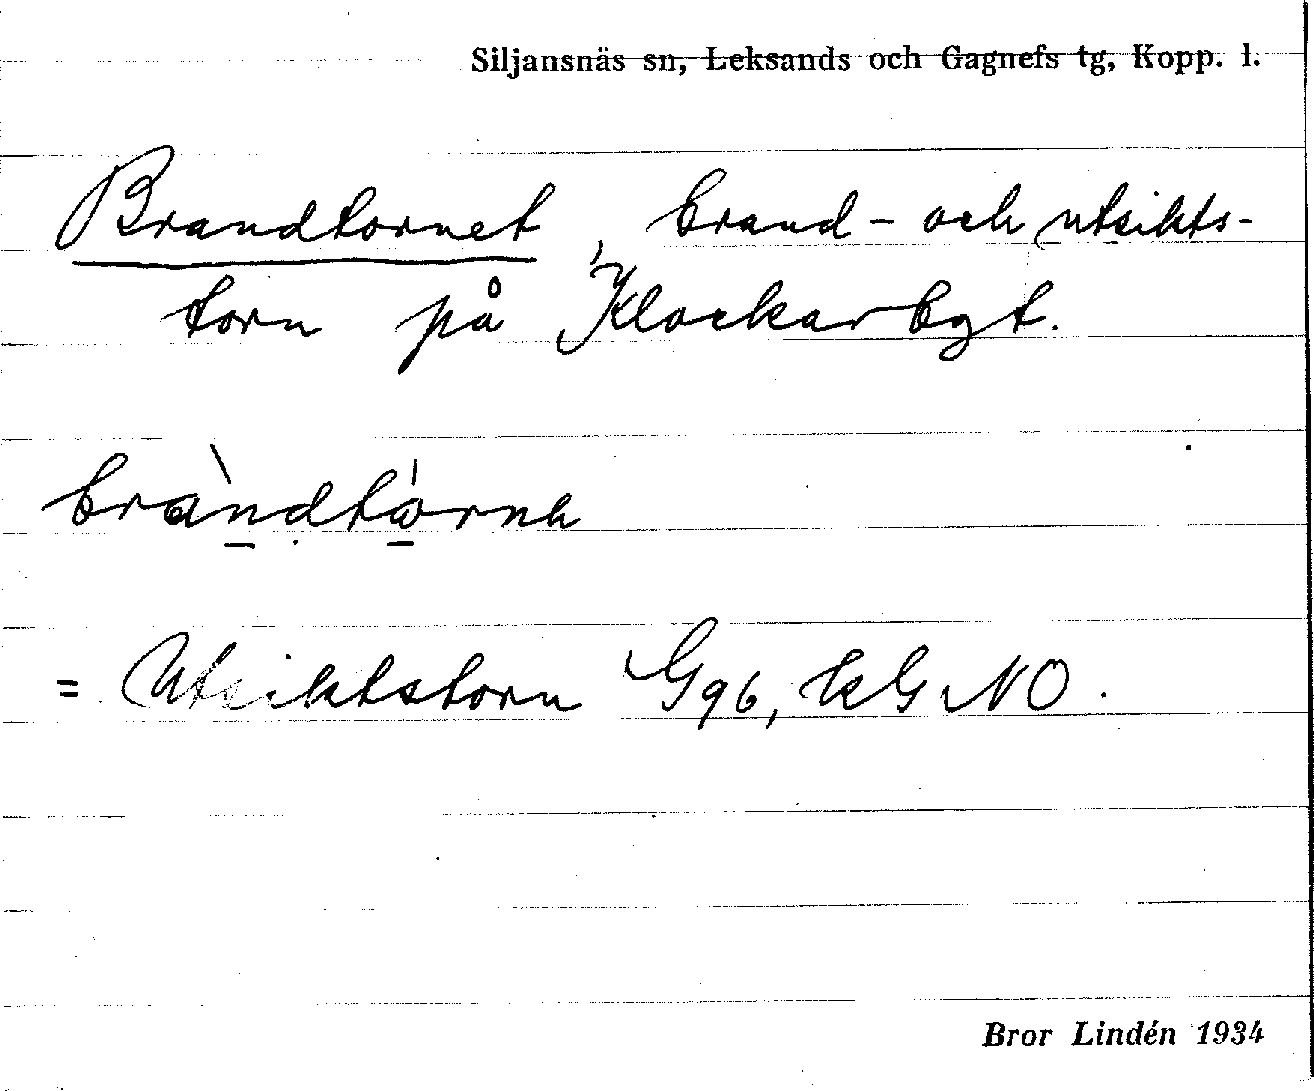 Siljansnäs sn, Leksands och Gagnefs tg, Kopp. l.
Brandtornet, brand- och utsikts-
torn på Klockarbgt.
bra̱ǹdtórna
= Utsiktstorn G96, kG NO.
Bror Lindén 1934